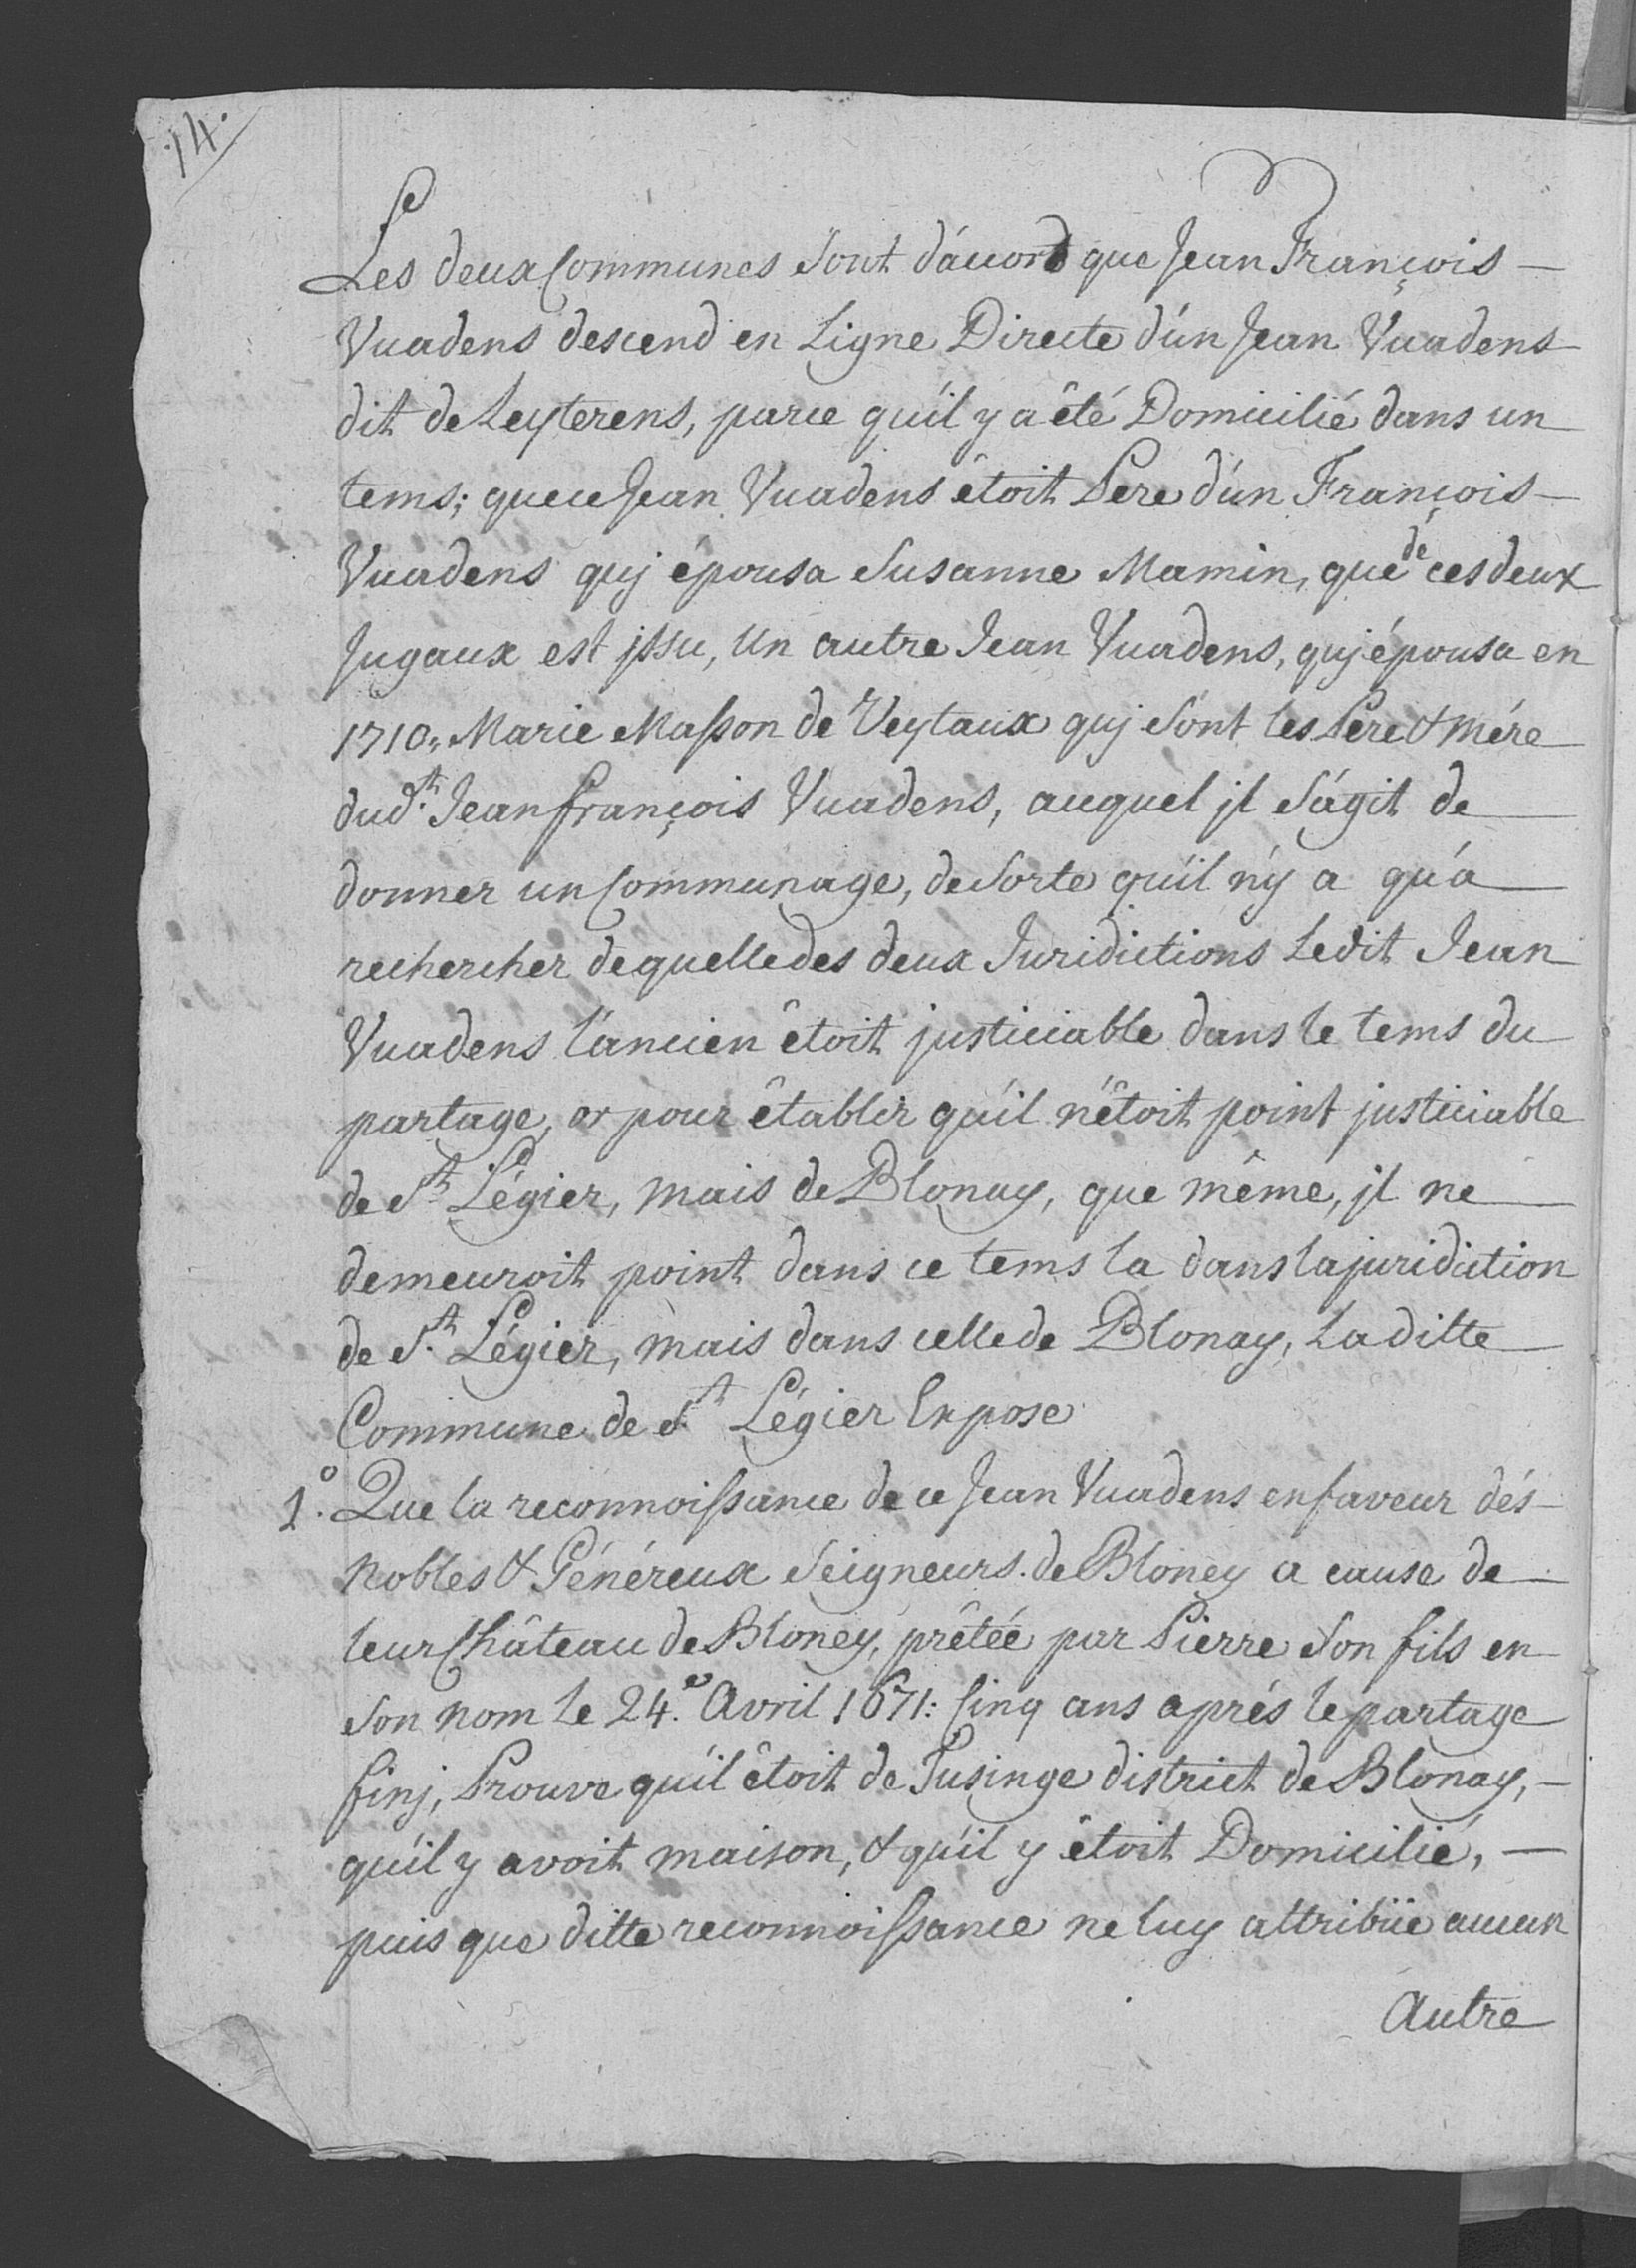 14.
Les deux Communes sont d'accord que Jean François
Vuadens descend en Ligne Directe d'un Jean Vuadens
dit de Leyterens, parce qu'il y a êté Domicilié dans un
tems; que ce Jean Vuadens êtoit Pere d'un François
Vuadens quj épousa Susanne Mamin, que de ces deux
Jugaux est jssu, Un autre Jean Vuadens, quj épousa en
1710, Marie Masson de Veytaux quj sont les Pere & Mére
dud.t Jean françois Vuadens, auquel jl s'agit de
donner un Communage, de sorte qu'il n'y a qu'a
rechercher de quelle des deux Juridictions Ledit Jean
Vuadens l'ancien êtoit justiciable dans le tems du
partage, or pour êtablir qu'il n'êtoit point justiciable
de S.t Légier, mais de Blonay, que même, jl ne
demeuroit point dans ce tems la dans la juridiction
de S.t Légier, mais dans celle de Blonay, Laditte
Commune de S.t Légier Expose
1.o Que la reconnoissance de ce Jean Vuadens en faveur dés
Nobles & Généreux Seigneurs de Bloney a cause de
leur Château de Bloney, prêtée par Pierre son fils en
son nom le 24.e Avril 1671: Cinq ans aprés le partage
finj, Prouve qu'il êtoit de Tusinge district de Blonay,
qu'il y avoit maison, & qu'il y êtoit Domicilié,
puis que ditte reconnoissance ne luy attribüe aucun
Autre